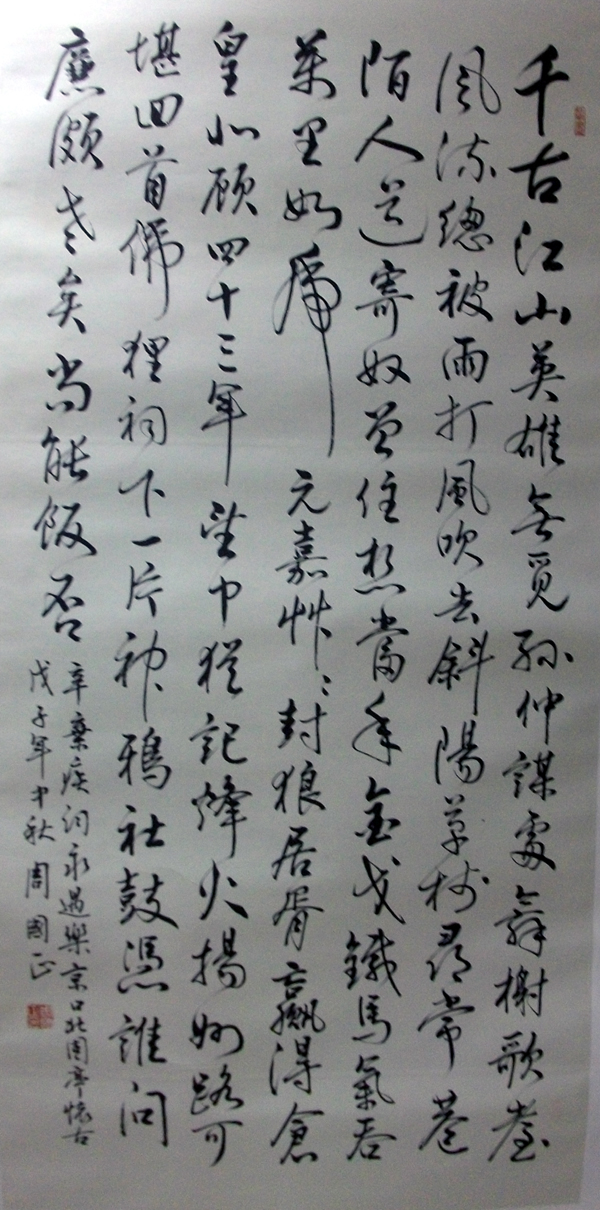 千古江山英雄無覓孫仲謀處舞榭歌臺
風流總被雨打風吹去斜陽草樹尋常巷
陌人道寄奴曾住想當年金戈鐵馬氣吞
萬里如虎元嘉艸〻封狼居胥贏得倉
皇北顧四十三年望中猶記烽火揚州路可
堪回首佛狸祠下一片神鴉社鼓憑誰問
廉頗老矣尚能飯否
辛棄疾詞永遇樂京口北固亭懷古
戊子年中秋周國正